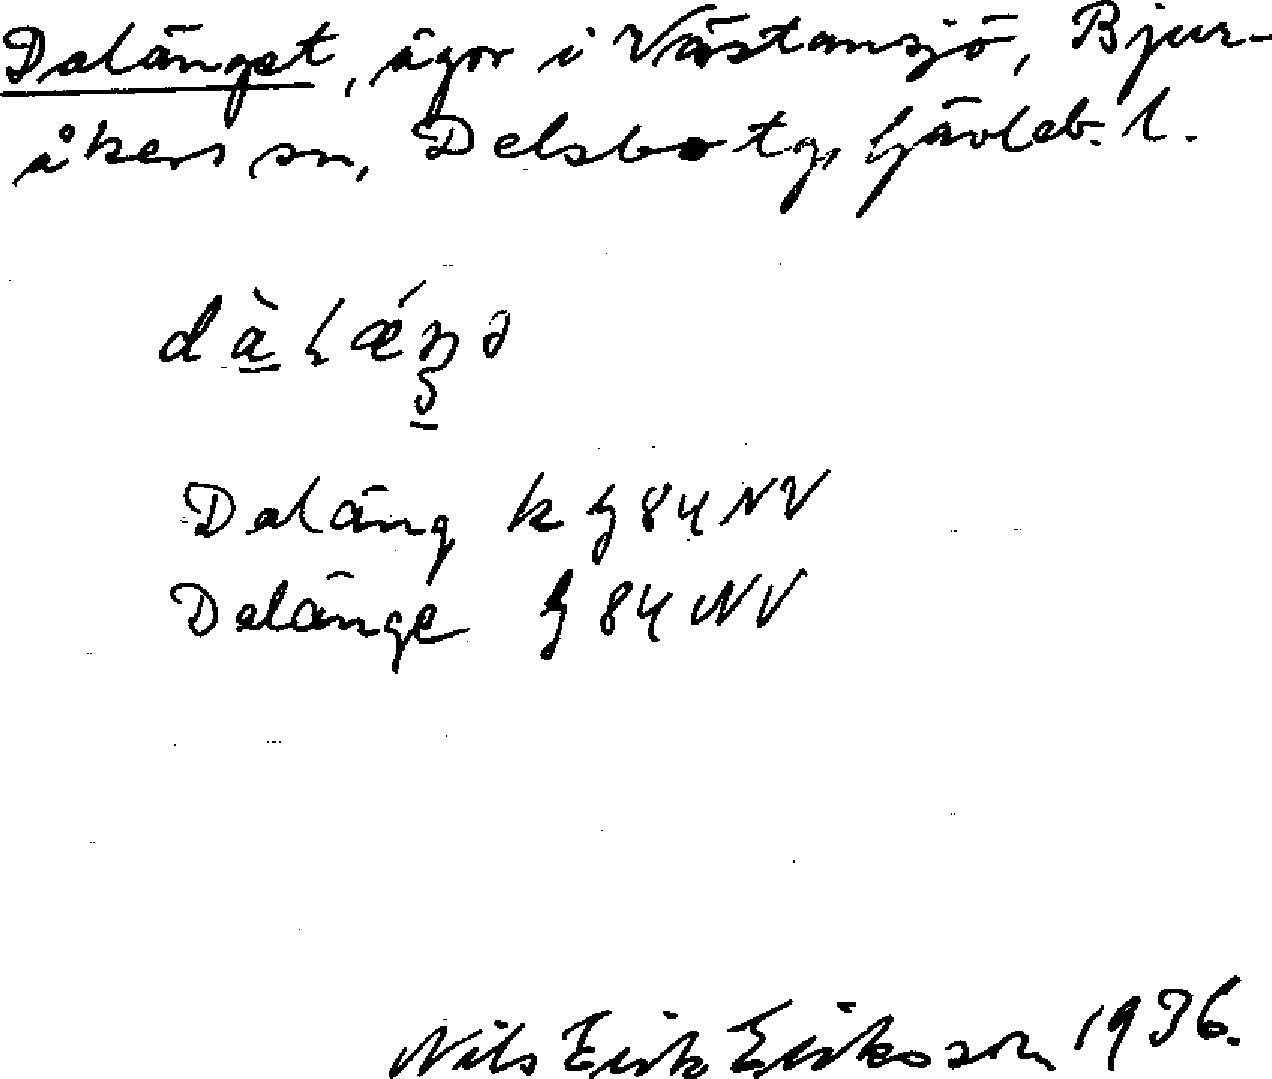 Dalänget, ägor i Västansjö, Bjur-
åkers sn, Delsbo tg, Gävleb. l.
Daläng k G 84 NV
Dalänge G 84 NV
Nils Erik Eriksson 1936.